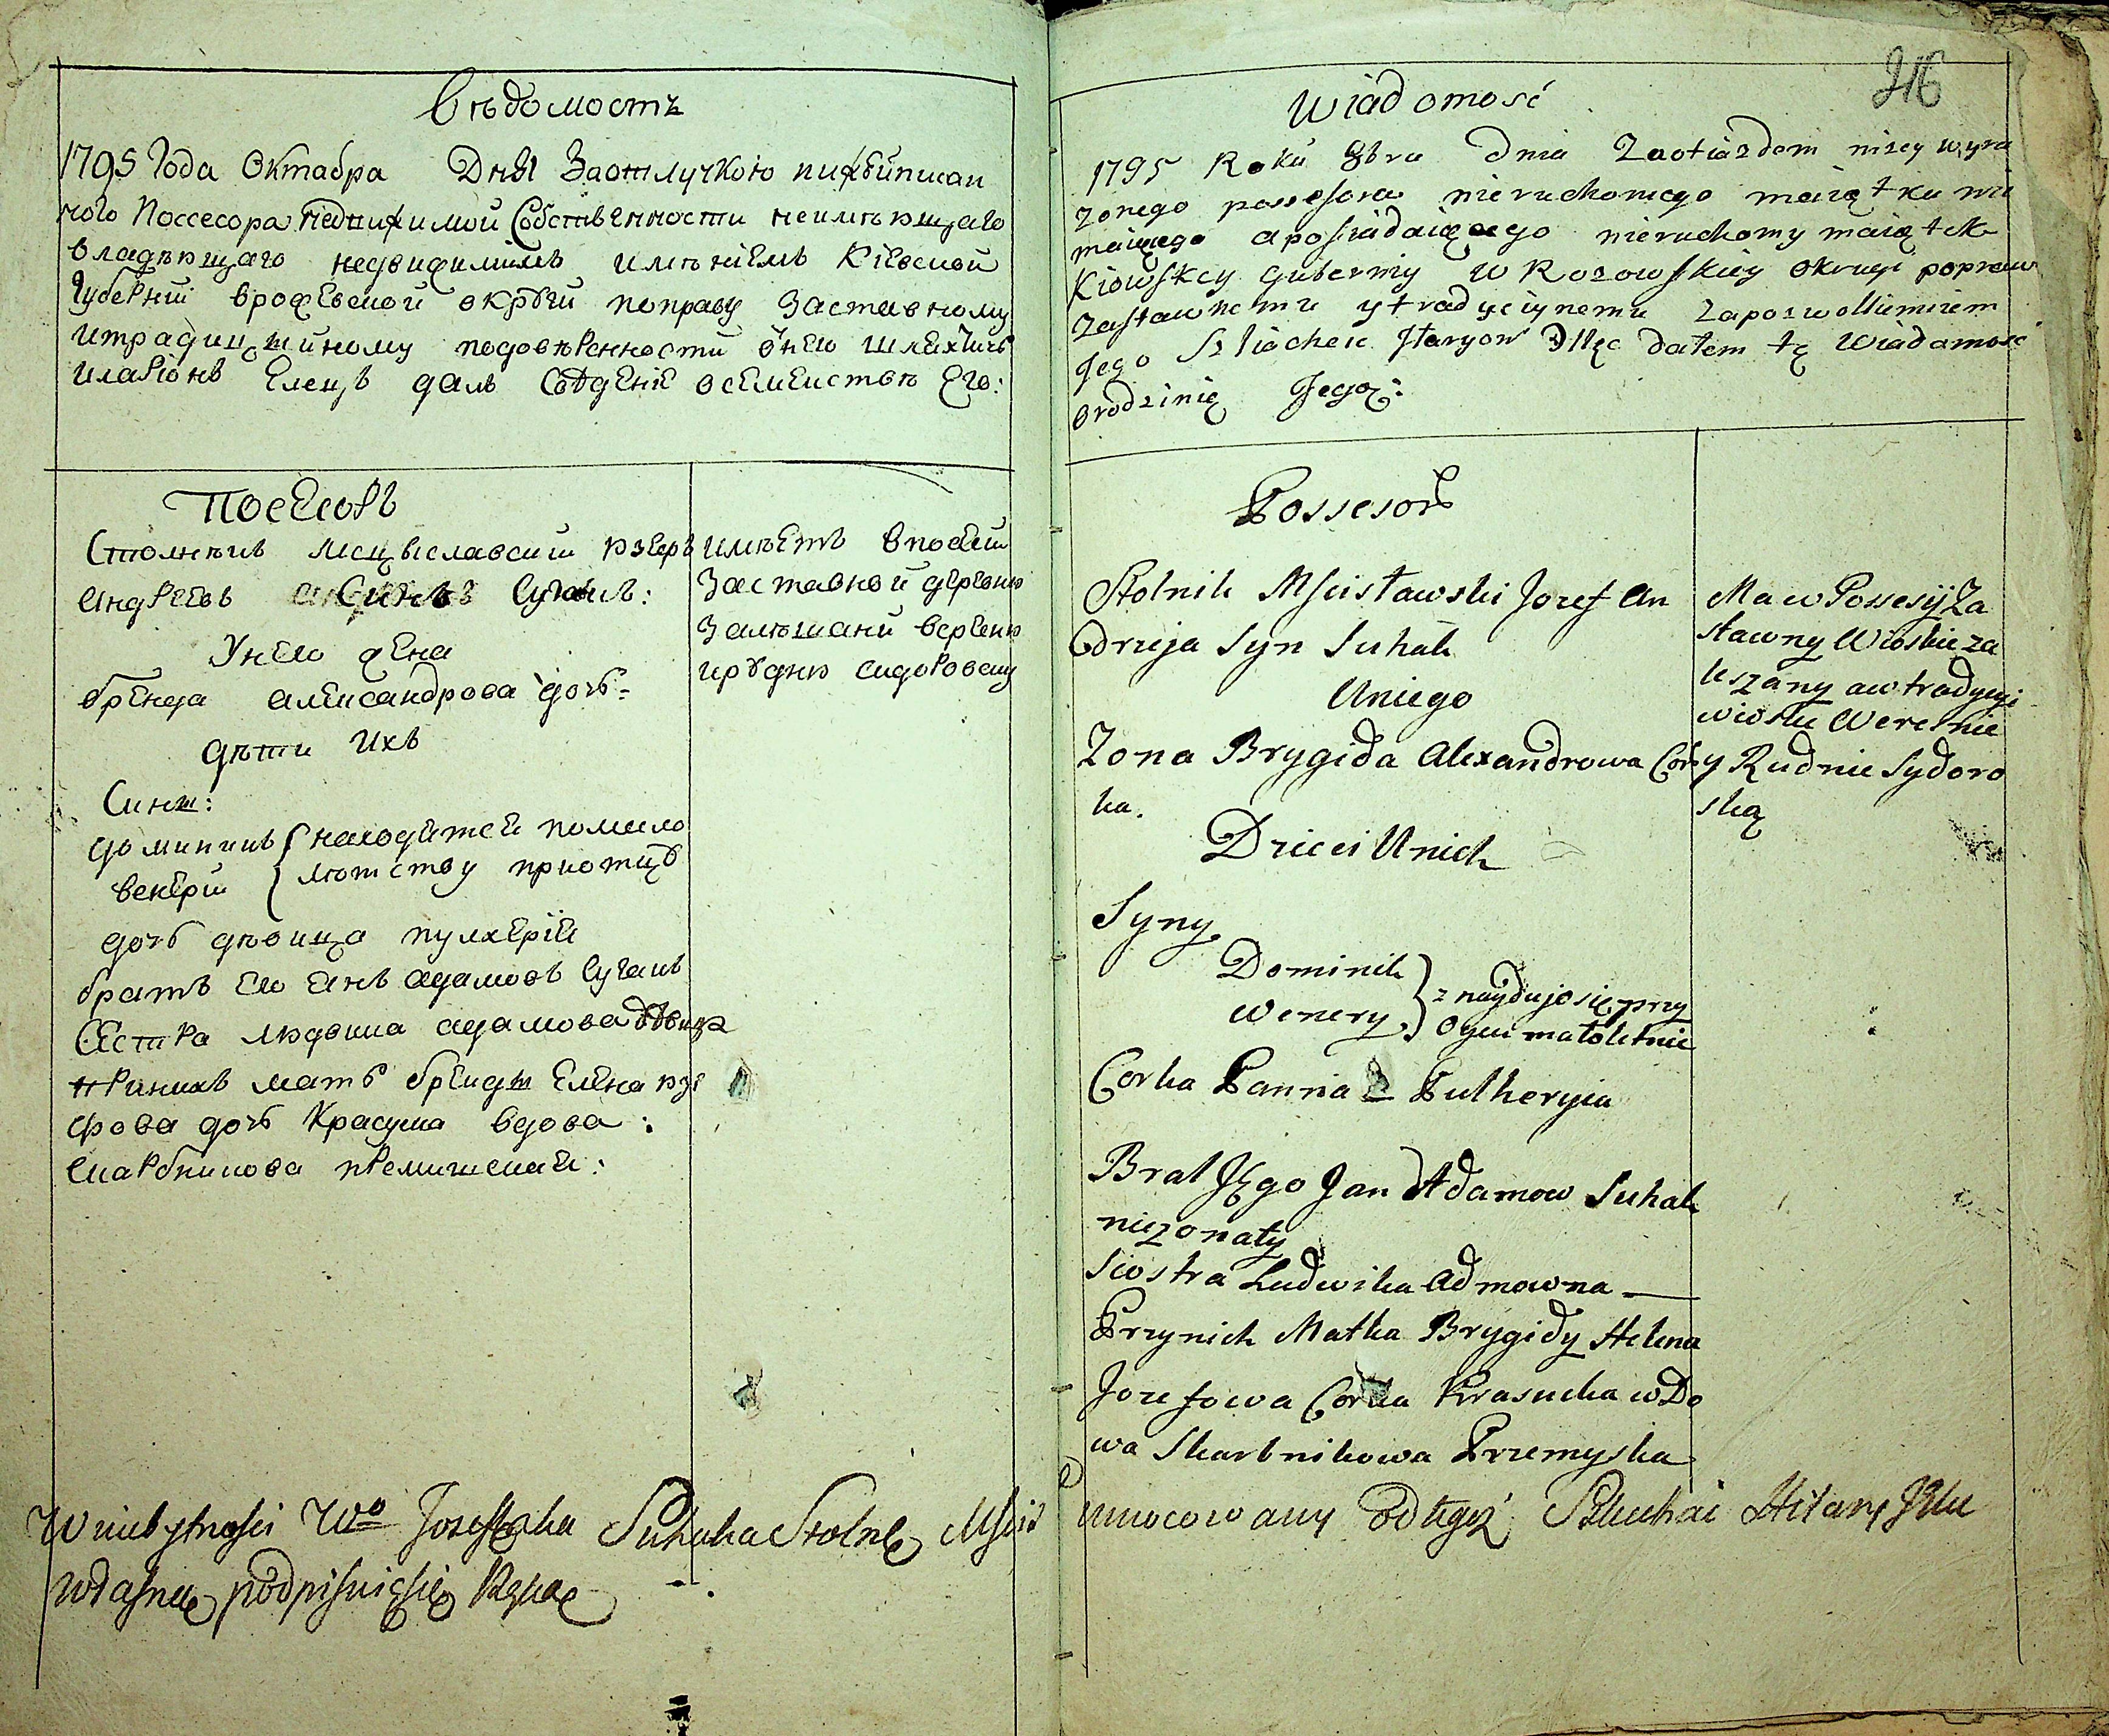 Вѣдомостъ
1795 года Октабра Дня Заотлучкою нижеиписан
ного Поссесора недвижимой Собственности неимѣющаго
владѣющаго недвижимимъ имѣниемъ Кіевской
Губерній вро͏жевской округи поправу заставному
итрадицийному подовѣренности
Иларіонъ Елецъ далъ Свѣдение осемеиствѣ Его:
Посесоръ
Столникъ Мсцыславский Юзефъ
Андреевъ Синъ Сугакъ:
Унего жена
Александрова дочь
дѣти Ихъ
Сини:
Доминикъ находятся помало
Венерий лютству приотцѣ
дочь дѣвица пулхерія
братъ Его Янъ Адамовъ Сугакъ
Сестра Людвика Адамова дѣвица
Приних мать Елена Юзе
фова дочь Красуцка Вдова:
Скарбникова премиская:
имѣетъ впосесии
Заставной деревню
Залѣшани Вересню
ирудню Сидоровску
216
Wiadomość
1795 Roku 8bra Dnia Zaotiazdem nizey wyra
zonego possessora nieruchomego maiątku nie
maiącego aposiadaiącego nieruchomy maiątek
Kiowskey Guberniy w Rozowskiey Okrugi popraw
zastawnemu ytradyciynemu zapozwolliemiem
Jego Szlachcic Jlaryon Jllęc dałem tę Wiadamość
orodzinię Jego:
Possesor
Stolnik Mscisławski Jozef An
drzeja Syn Suhak
Uniego
Zona Brygida Alexandrowa Cor
ka.
Dzieci Unich
Syny
Dominik
Wenery
znayduio się przy
Oycu małoletnie
Corka Panna Pulheryia
Brat Jego Jan Adamow Suhak
niezonaty
Siostra Ludwika Admowna
Przynich Matka Brygidy Helena
Jozefowa Corka Krasucka wDo
wa Skarbnikowa Przemyska
Ma w Possesij Za
stawny Wioskie Za
leszany aw tradycyi
wioskie Weresnie
y Rudnie Sydoro
ską
W niebytnosci Wo Jozefa Suhaka Stolnka Mscis umocowany od tegoż Hilary
własną podpisuię się Ręką